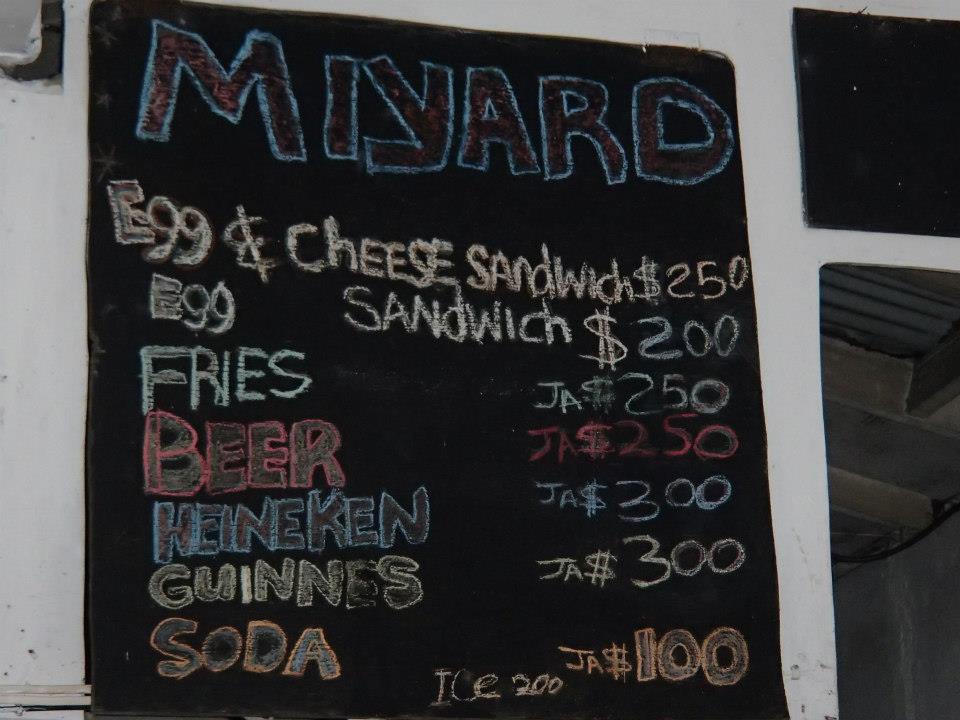 MIYARD
Egg & CHEESE SANDwich $250
Egg SANDWICh $200
FRIES JA$250
BEER JA$250
HEINEKEN JA$300
GUINNES JA$300
SODA JA$100
ICe 200